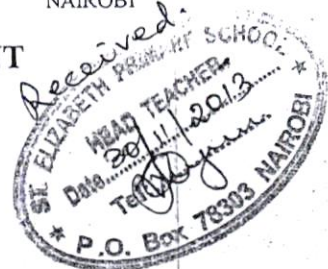 NAIROBI
Received.
NT
ST. ELIZABETH PRIMARY SCHOOL
HEAD TEACHER
Date 30/11/2013
Tel
* P.O. Box 78303 NAIROBI *